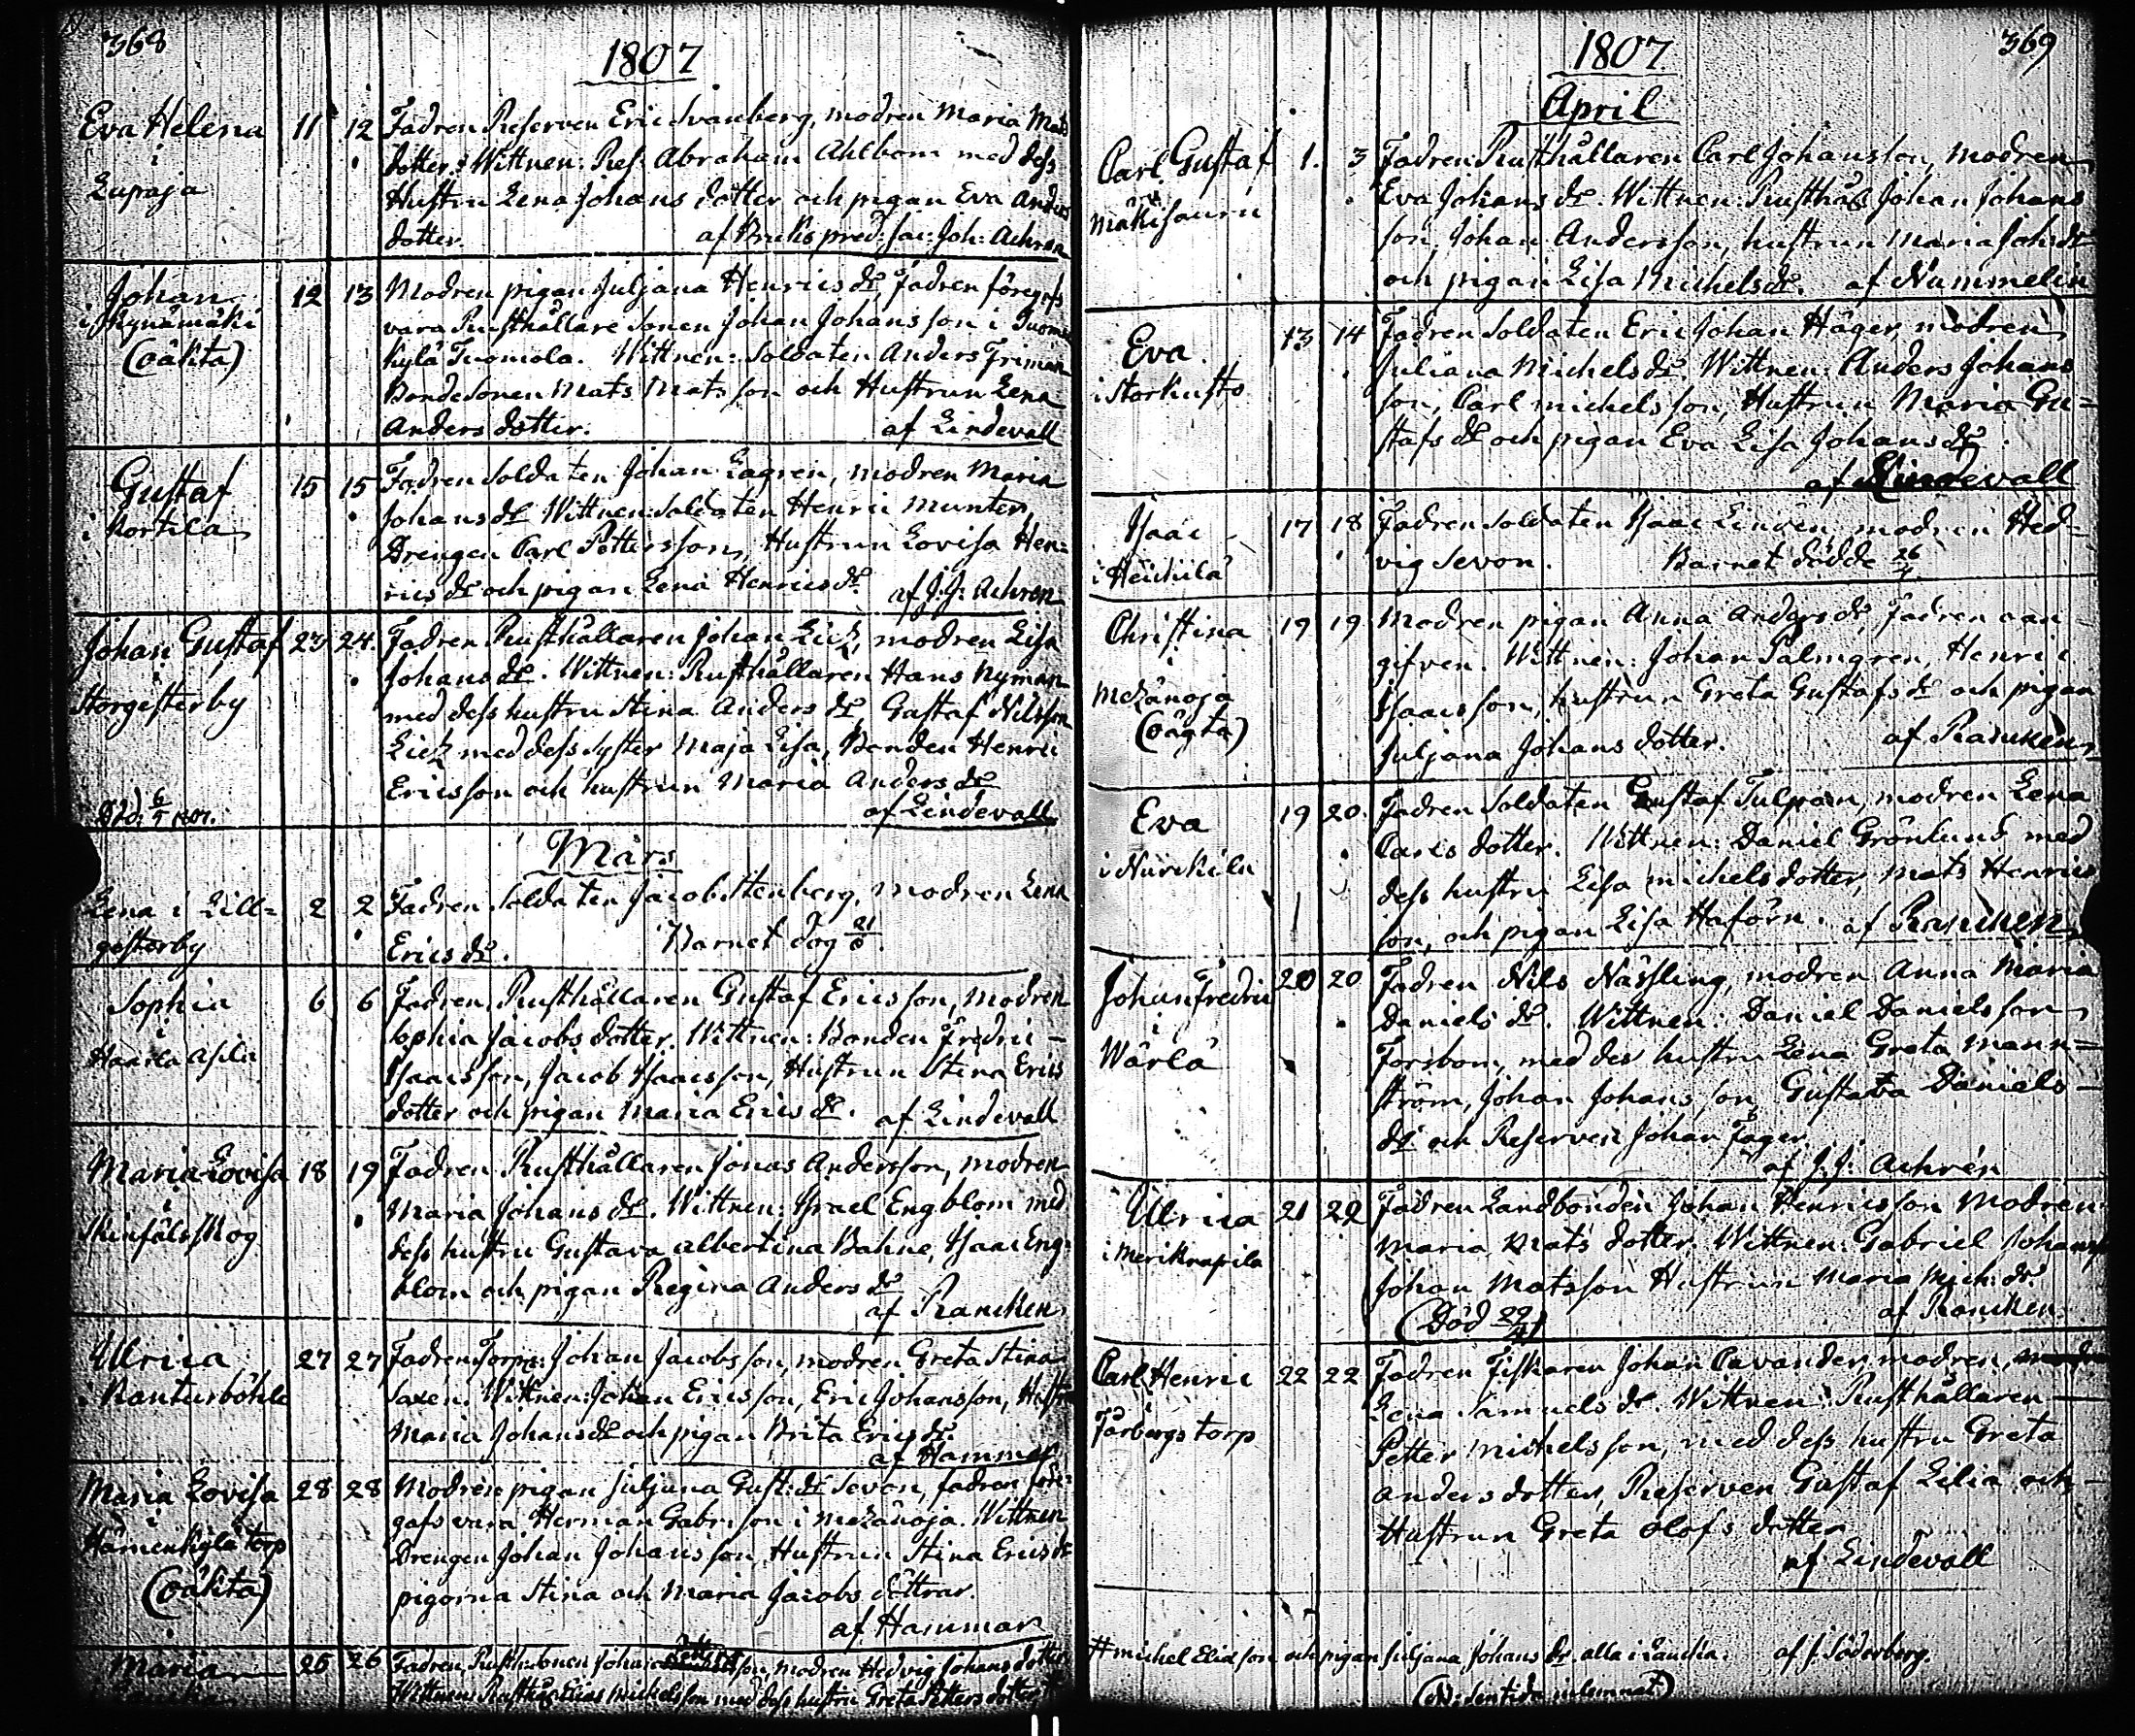 368
1807
Eva Helena 11 12 Fadren Reserven Eric Svanberg, modren Maria Mats
i dotter. Wittnen: Res. Abraham Ahlbom med dess
Lupaja Hustru Lena Johans dotter och pigan Eva Anders
dotter. af Bruks pred: Joh: Achren
Johan 12 13 Modren pigan Juljana Henrics dr, Fadren föregifs
i Kynämäki vara Rusthållare Sonen Johan Johansson i
(oäkta) kylä Tuomola. Wittnen: Soldaten Anders Friman
Bondesonen Mats Matsson och Hustrun Lena
Anders dotter. af Lindevall
Gustaf 15 15 Fadren Soldaten Johan Lagren, modren Maria
i Kortila Johans dr Wittnen: Soldaten Henric Munter,
Drengen Carl Pettersson, Hustrun Lovisa Hen=
rics dr och pigan Lena Henrics dr. af J.J: Achren
Johan Gustaf 23 24. Fadren Rusthållaren Johan Lich, modren Lisa
i Johans dr. Wittnen: Rusthållaren Hans Nyman
Storgesterby med dess hustru Stina Anders dr, Gustaf Nilsson
Lich med dess Syster Maja Lisa, Bonden Henric
Ericsson och hustrun Maria Anders dr
af Lindevall
Mars
Lena i Lill= 2 2 Fadren Soldaten Jacob Stenberg, Modren Lena
gesterby Erics dr. Barnet dog
Sophia 6 6 Fadren Rusthållaren Gustaf Ericsson, Modren
i Sophia Jacobs dotter. Wittnen: Bonden Fredric
Isaacsson, Jacob Isaacsson, Hustrun Stina Erics
dotter och pigan Maria Erics dr. af Lindevall
Maria Lovisa 18 19 Fadren Rusthållaren Jonas Andersson, modren
i Maria Johans dr. Wittnen: Israel Engblom med
Skinfälsskog dess hustru Gustava Albertina Bahne, Isaac Eng=
blom och pigan Regina Anders dr
af Rancken
Ulrica 27 27 Fadren Torp: Johan Jacobsson, modren Greta Stina
i Nanturböhle Saxen. Wittnen: Johan Ericsson, Eric Johansson, Hustr
Maria Johans dr och pigan Brita Erics dr.
af Hammar
Maria Lovisa 28 28 Modren pigan Juljana Gust: dr Sevon, fadren före=
i gafs vara Herman Gabr: son i Mezänoja. Wittnen
Hämenkylä torp Drengen Johan Johansson, Hustrun Stina Erics dr
(oäkta) pigorna Stina och Maria Jacobs döttrar.
af Hammar
Maria 25 26 Fadren Johan son, modren Hedvig Johans dotter
Wittnen: Rusthål: Elias Michelsson med dess hustru Greta Petters dotter #
369
1807
April
Carl Gustaf 1. 3 Fadren Rusthållaren Carl Johansson, modren
i Eva Johans dr. Wittnen: Rusthål Johan Johans
Mäkisauru son, Johan Andersson, hustrun Maria Joh: dr
och pigan Lisa Michels dr. af Nummelin
Eva 13 14 Fadren Soldaten Eric Johan Häger, modren
i Storkusto Juliana Michels dr Wittnen: Anders Johans
son, Carl Michelsson, Hustrun Maria Gu=
stafs dr och pigan Eva Lisa Johans dr.
af Lindevall
Isaac 17 18 Fadren Soldaten Isaac Linden, modren Hed=
i Heickilä vig Sevon. Barnet dödde 26/4
Christina 19 19 Modren pigan Anna Anders dr, Fadren oan
i gifven. Wittnen: Johan Palmgren, Henric
Mezänoja Isaacsson, hustrun Greta Gustafs dr och pigan
(oägta) Juljana Johans dotter. af Rancken
Eva 19 20. Fadren Soldaten Gustaf Tulpan, modren Lena
i Nurckila Carls dotter. Wittnen: Daniel Grönlund med
dess hustru Lisa Michels dotter, Mats Henrics
son, och pigan Lisa Haforn. af Rancken
Johan Fredric 20 20 Fadren Nils Nässling, modren Anna Maria
i Daniels dr. Wittnen: Daniel Danielsson
Wärlä Forsbom, med des hustru Lena Greta Mann=
ström, Johan Johansson, Gustava Daniels
dr och Reserven Johan Jäger.
af J.J: Achrén
Ulrica 21 22 Fadren Landbonden Johan Henricsson Modren
i Merikrapila Maria Mats dotter Wittnen: Gabriel Johans
Johan Matsson Hustrun Maria Mich: dr.
(Död 29/4) af Rancken
Carl Henric 22 22 Fadren Fiskaren Johan Cavander, modren
i Lena Samuels dr. Wittnen: Rusthållaren
Färbergs torp Petter Michelsson, med dess hustru Greta
Anders dotter, Reserven Gustaf Lilia och
Hustrun Greta Olofs dotter
af Lindevall
# Michel Eliasson och pigan Juljana Johans dr. alla i af J. Söderberg.